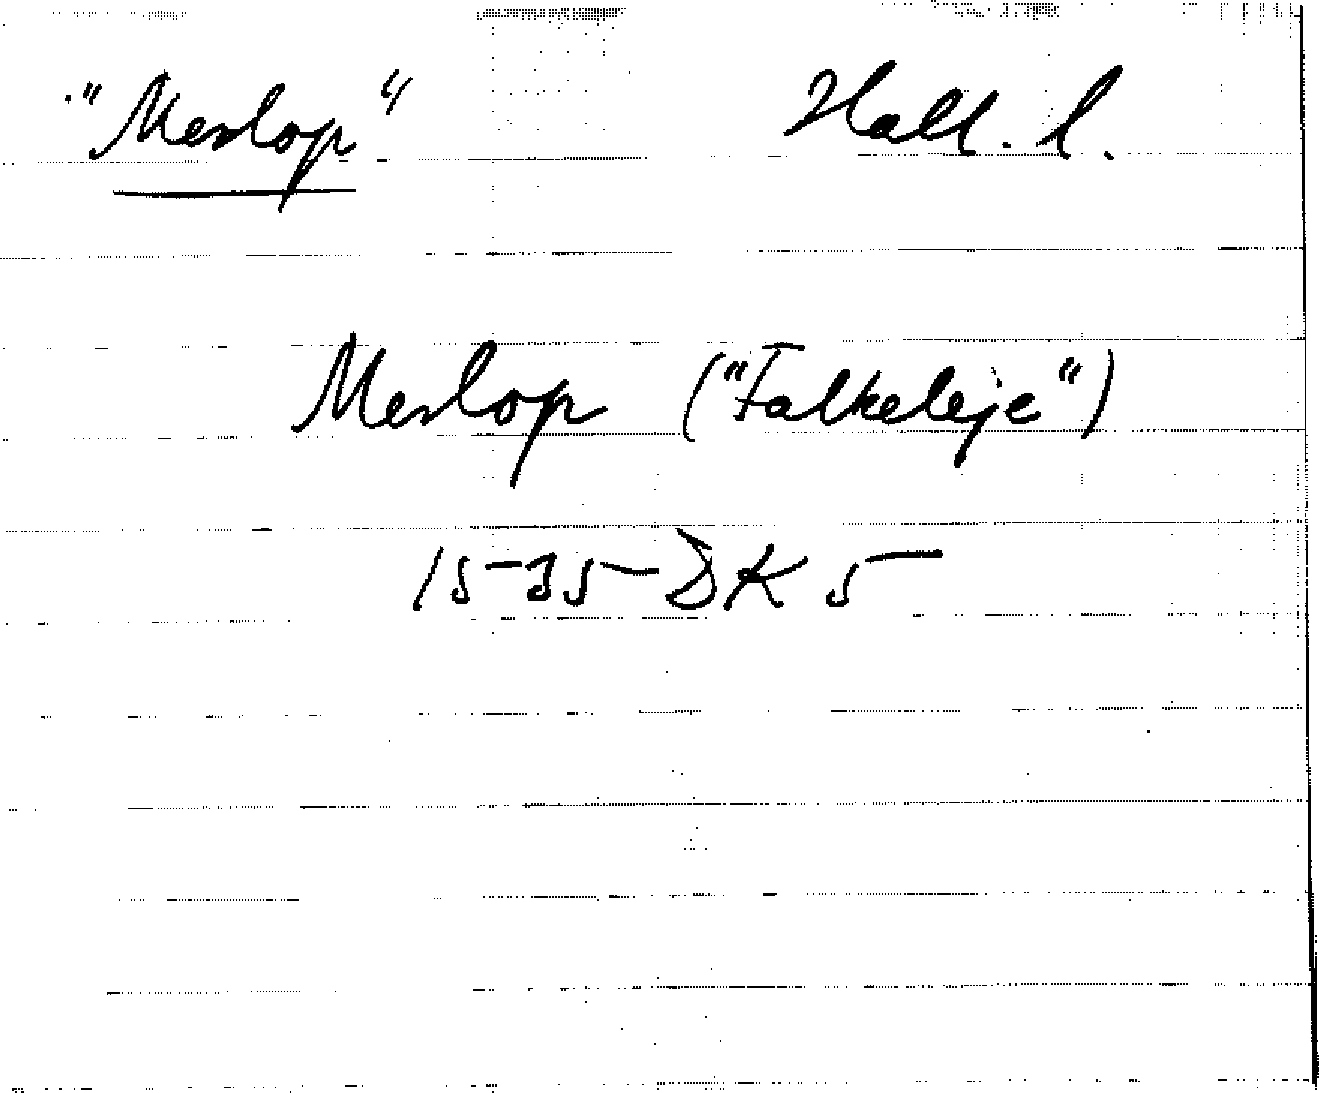 "Merlop" Hall. l.
Merlop ("Falkeleje")
15-35-DK 5